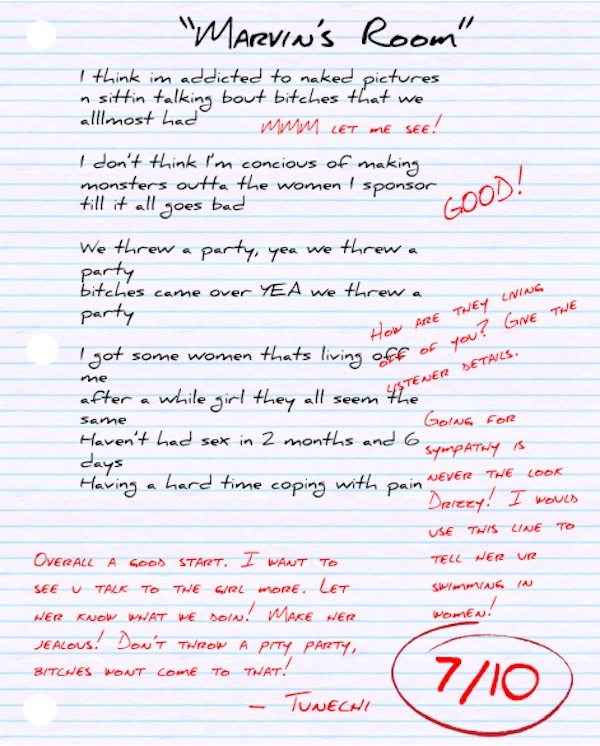 "Marvin's Room"
I think im addicted to naked pictures
n sittin talking bout bitches that we
alllmost had
MMM LET ME SEE!
I don't think I'm concious of making
monsters outta the women I sponsor
till it all goes bad
GOOD!
We threw a party, yea we threw a
party
bitches came over YEA we threw a
party
I got some women thats living off
me
after a while girl they all seem the
same
Haven't had sex in 2 months and 6
days
Having a hard time coping with pain
HOW ARE THEY LIVING
OFF OF YOU? GIVE THE
LISTENER DETAILS.
GOING FOR
SYMPATHY IS
NEVER THE LOOK
DRIZZY! I WOULD
USE THIS LINE TO
TELL HER UR
SWIMMING IN
WOMEN!
OVERALL A GOOD START. I WANT TO
SEE U TALK TO THE GIRL MORE. LET
HER KNOW WHAT WE DOIN! MAKE HER
JEALOUS! DON'T THROW A PITY PARTY,
BITCHES WONT COME TO THAT!
– TUNECHI
7/10